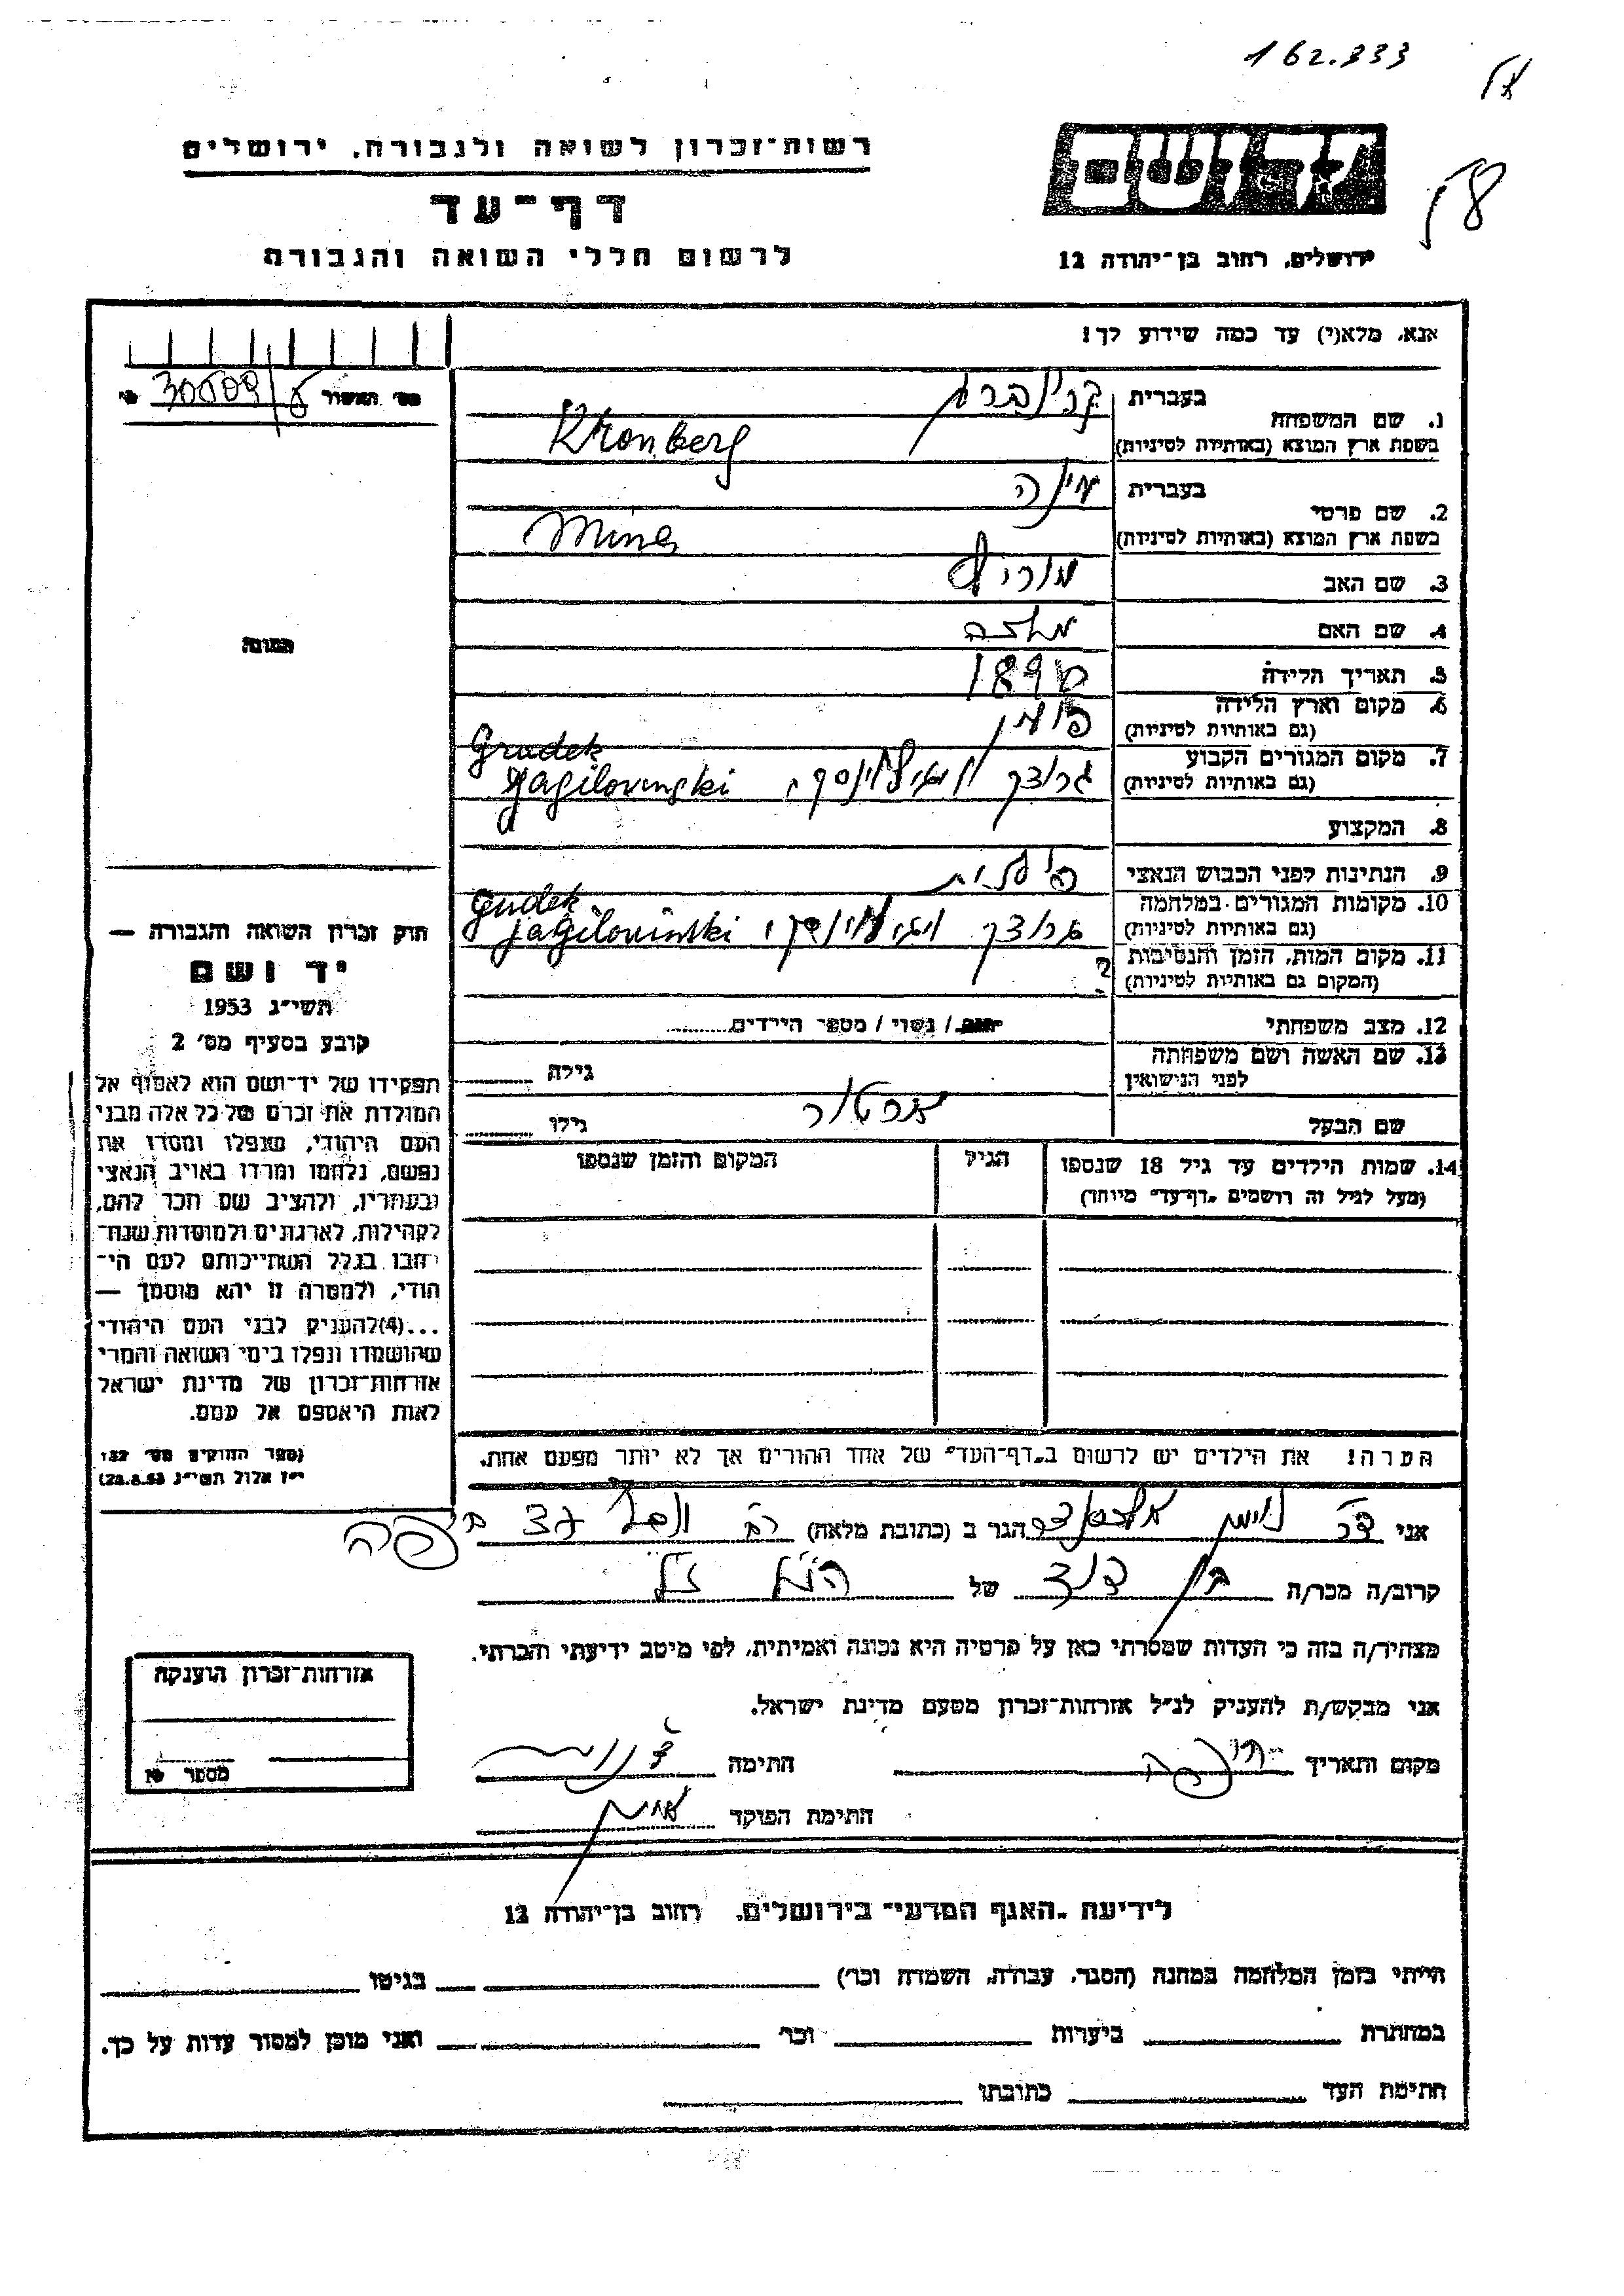 162.333
רשות־זכרון לשואה ולגבורה, ירושלים
דף־עד
לרשום חללי השואה והגבורה
ירושלים, רחוב בן־יהודה 12
אנא, מלא(י) עד כמה שידוע לך!
1. שם המשפחה בעברית קרונברג
בשפת ארץ המוצא (באותיות לטיניות) Kronberg
2. שם פרטי בעברית מינה
בשפת ארץ המוצא (באותיות לטיניות) Mina
3. שם האב מוריץ
4. שם האם
5. תאריך הלידה
6. מקום וארץ הלידה
(גם באותיות לטיניות)
7. מקום המגורים הקבוע גרודק Grudek
(גם באותיות לטיניות) Jagilovinski
8. המקצוע
9. הנתינות לפני הכבוש הנאצי פולנית
10. מקומות המגורים במלחמה גרודק Grudek
(גם באותיות לטיניות) Jagilovinski
11. מקום המות, הזמן והנסיבות ?
(המקום גם באותיות לטיניות)
12. מצב משפחתי / נשוי / מספר הילדים
13. שם האשה ושם משפחתה
לפני הנישואין גילה
שם הבעל ארטור גילו
14. שמות הילדים עד גיל 18 שנספו הגיל המקום והזמן שנספו
(מעל לגיל זה רושמים „דף־עד” מיוחד)
הערה! את הילדים יש לרשום ב„דף־העד” של אחד ההורים אך לא יותר מפעם אחת.
מס' האשור 30509
תמונה
חוק זכרון השואה והגבורה —
יד ושם
תשי״ג 1953
קובע בסעיף מס׳ 2
תפקידו של יד־ושם הוא לאסוף אל
המולדת את זכרם של כל אלה מבני
העם היהודי, שנפלו ומסרו את
נפשם, נלחמו ומרדו באויב הנאצי
ובעוזריו, ולהציב שם וזכר להם,
לקהילות, לארגונים ולמוסדות שנח־
רבו בגלל השתייכותם לעם הי־
הודי, ולמטרה זו יהא מוסמך —
...(4)להעניק לבני העם היהודי
שהושמדו ונפלו בימי השואה והמרי
אזרחות־זכרון של מדינת ישראל
לאות היאספם אל עמם.
(ספר החוקים מס׳ 132,
י״ז אלול תשי״ג 28.8.53)
אני ד״ר נוימן אלכסנדר הגר ב (כתובת מלאה) חיפה
קרוב/ה מכר/ה בן דוד של הנ״ל ז״ל
מצהיר/ה בזה כי העדות שמסרתי כאן על פרטיה היא נכונה ואמיתית, לפי מיטב ידיעתי והכרתי.
אני מבקש/ת להעניק לנ״ל אזרחות־זכרון מטעם מדינת ישראל.
מקום ותאריך חיפה חתימה
חתימת הפוקד
אזרחות־זכרון הוענקה
מספר
לידיעת „האגף המדעי” בירושלים, רחוב בן־יהודה 12
הייתי בזמן המלחמה במחנה (הסגר, עבודה, השמדה וכו׳) בגיטו
במחתרת ביערות וכו׳ ואני מוכן למסור עדות על כך.
חתימת העד כתובתו